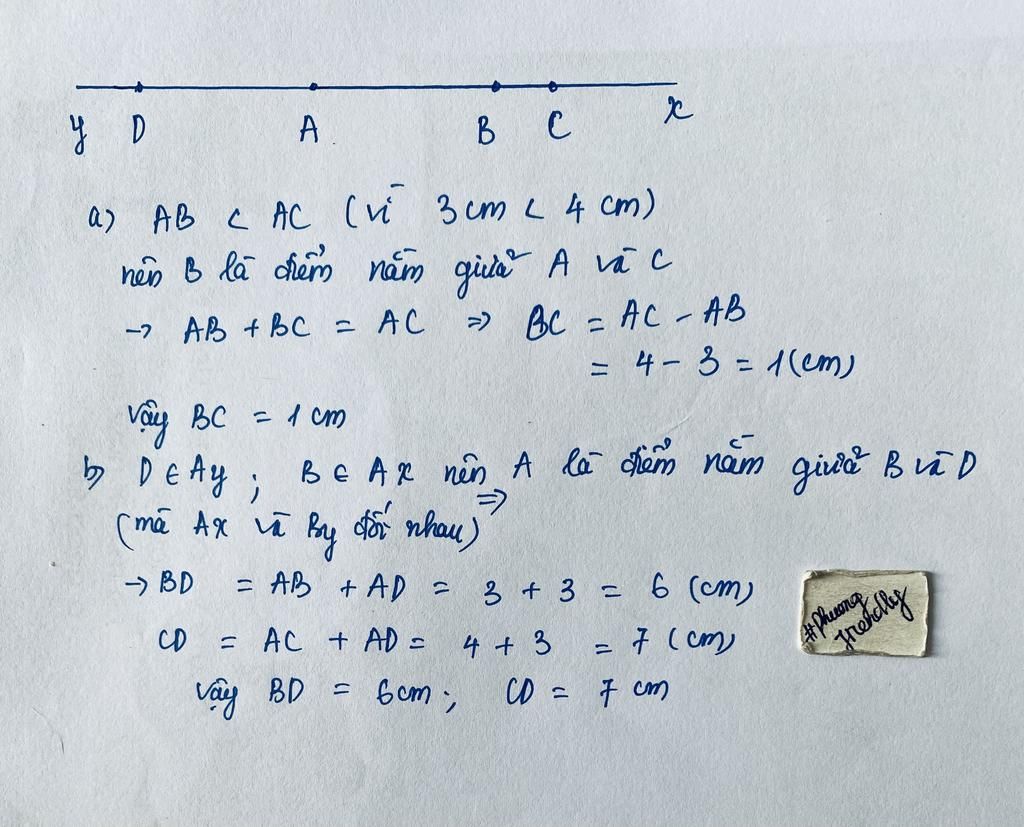 y D A B C x
a) AB < AC (vì 3 cm < 4 cm)
nên B là điểm nằm giữa A và C
→ AB + BC = AC ⇒ BC = AC - AB
= 4 - 3 = 1 (cm)
vậy BC = 1 cm
b) D ∈ Ay ; B ∈ Ax nên A là điểm nằm giữa B và D
(mà Ax và By đối nhau) ⇒
→ BD = AB + AD = 3 + 3 = 6 (cm)
CD = AC + AD = 4 + 3 = 7 (cm)
vậy BD = 6cm ; CD = 7 cm
#phuong
friendlly